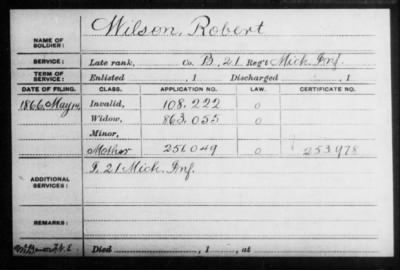 NAME OF SOLDIER: Wilson, Robert
SERVICE: Late rank, Co. B, 21 Reg't Mich. Inf.
TERM OF SERVICE: Enlisted , 1 Discharged , 1
DATE OF FILING. CLASS. APPLICATION NO. LAW. CERTIFICATE NO.
1866. May Invalid, 108.222 0
Widow, 863.055
Minor,
Mother 256049 0 253978
ADDITIONAL SERVICES: I. 21 Mich. Inf.
REMARKS:
Died , 1 , at